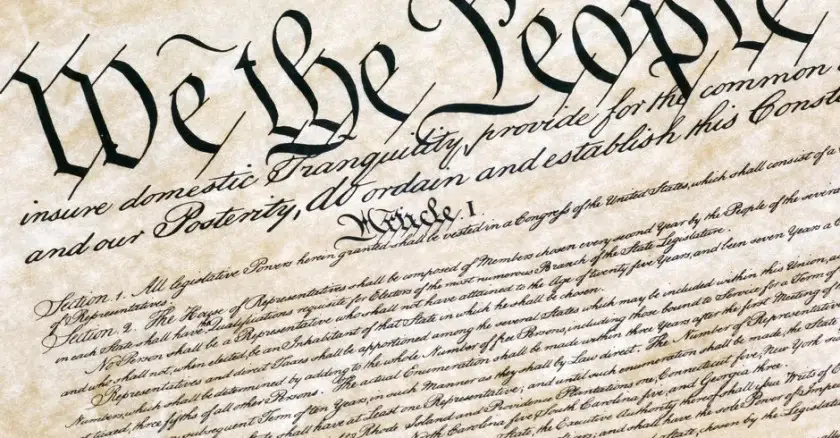 We the People
insure domestic Tranquility, provide for the common
and our Posterity, do ordain and establish this Const
Article I.
Section 1. All legislative Powers herein granted shall be vested in a Congress of the United States, which shall consist of a
of Representatives.
Section 2. The House of Representatives shall be composed of Members chosen every second Year by the People of the several
in each State shall have the Qualifications requisite for Electors of the most numerous Branch of the State Legislature.
No Person shall be a Representative who shall not have attained to the Age of twenty five Years, and been seven Years a C
and who shall not, when elected, be an Inhabitant of that State in which he shall be chosen.
Representatives and direct Taxes shall be apportioned among the several States which may be included within this Union, ac
Numbers, which shall be determined by adding to the whole Number of free Persons, including those bound to Service for a Term of
taxed, three fifths of all other Persons. The actual Enumeration shall be made within three Years after the first Meeting of
subsequent Term of ten Years, in such Manner as they shall by Law direct. The Number of Representati
shall have at Least one Representative; and until such enumeration shall be made, the State
Rhode Island and Providence Plantations one, Connecticut five, New York
North Carolina five, South Carolina five, and Georgia three.
State, the Executive Authority thereof shall issue Writs of
and shall have the sole Power of Imp
State, chosen by the Legislatur